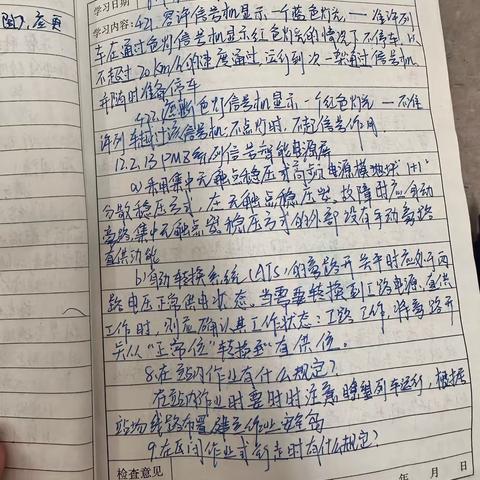 学习日期
学习内容:421.容许信号机显示一个蓝色灯光——准许列
车在通过色灯信号机显示红色灯光的情况下不停车,以
不超过20km/h的速度通过,运行到次一架通过信号机
并随时准备停车
422.遮断色灯信号机显示一个红色灯光——不准
许列车越过该信号机;不点灯时,不起信号作用.
12.2.13 PMZ系列信号智能电源屏
a)采用集中无触点稳压式高频电源模块或"1+1"
分散稳压方式,在无触点稳压器故障时应自动
旁路集中无触点稳压方式的外部设有手动旁路
直供功能
b)自动转换系统(ATS)的旁路开关平时应处于两
路电压正常供电状态,当需要转换到工路电源直供
工作时,则应确认其工作状态:工路工作,将旁路开
关从"正常位"转换到"直供位。
8.在站内作业有什么规定?
在站内作业时要时时注意瞭望列车运行,根据
站场线路布置建立作业安全岛
9.在区间作业或行走时有什么规定?
检查意见
年 月 日